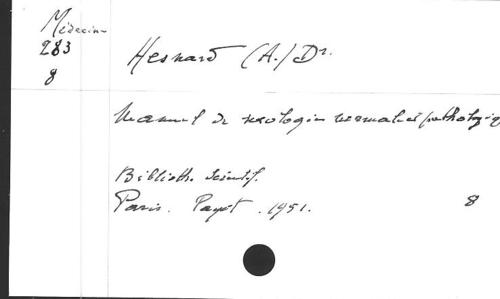 Médecine
283
8
Hesnard (A.) Dr.
Manuel de sexologie normale et pathologiq
Biblioth. Scientif.
Paris. Payot. 1951.
8